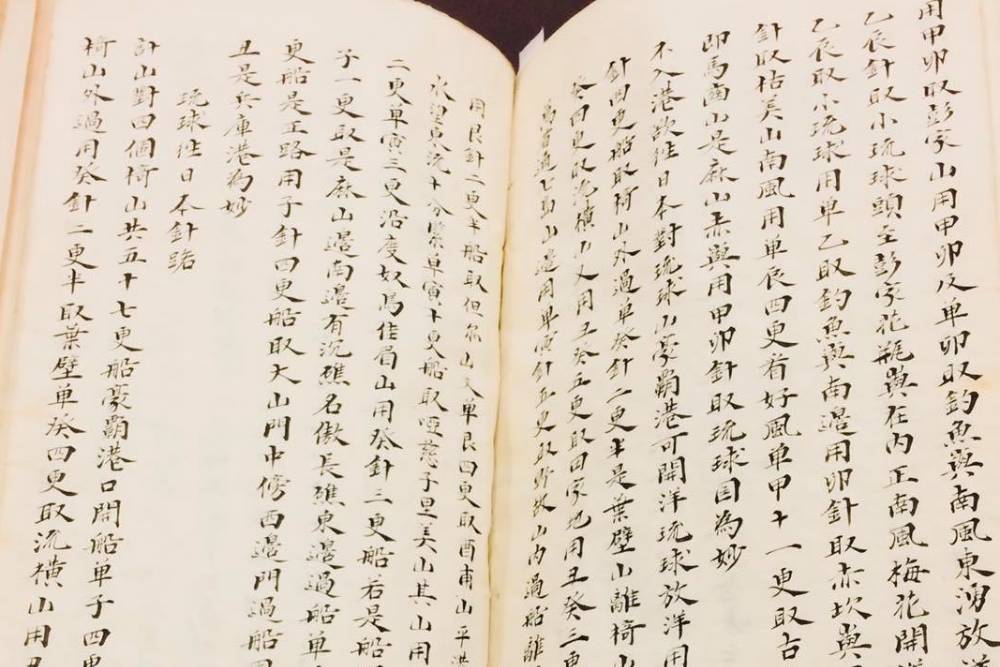 用甲卯取彭家山用甲卯及单卯取釣魚嶼南風東湧放洋
乙辰針取小琉球頭至彭家花瓶嶼在内正南風梅花開
乙辰取小琉球用单乙取釣魚嶼南邉用卯針取赤坎嶼
針取枯美山南風用单辰四更看好風单甲十一更取古
即馬齒山是麻山赤嶼用甲卯針取琉球国為妙
不入港欲徃日本對琉球山豪覇港可開洋琉球放洋用
針四更船取椅山外過单癸針二更半是葉壁山離椅山
癸四更取流横山又用丑癸五更取田家地用丑癸三更
七島山邉用单寅針五更取野故山内過船離
用艮針二更半船取但尔山又单艮四更取酉甫山平港
水望東流十分緊单寅十更船取啞慈子里美山其山用
二更单寅三更沿度奴烏佳眉山用癸針三更船若是船
子一更取是麻山邉南邉有沉礁名傲長礁東邉過船单
更船是正路用子針四更船取大山門中傍西邉門過船
丑是兵庫港為妙
琉球徃日本針路
計山對四個椅山共五十七更船豪覇港口開船单子四更
椅山外過用癸針二更半取葉壁单癸四更取流横山用